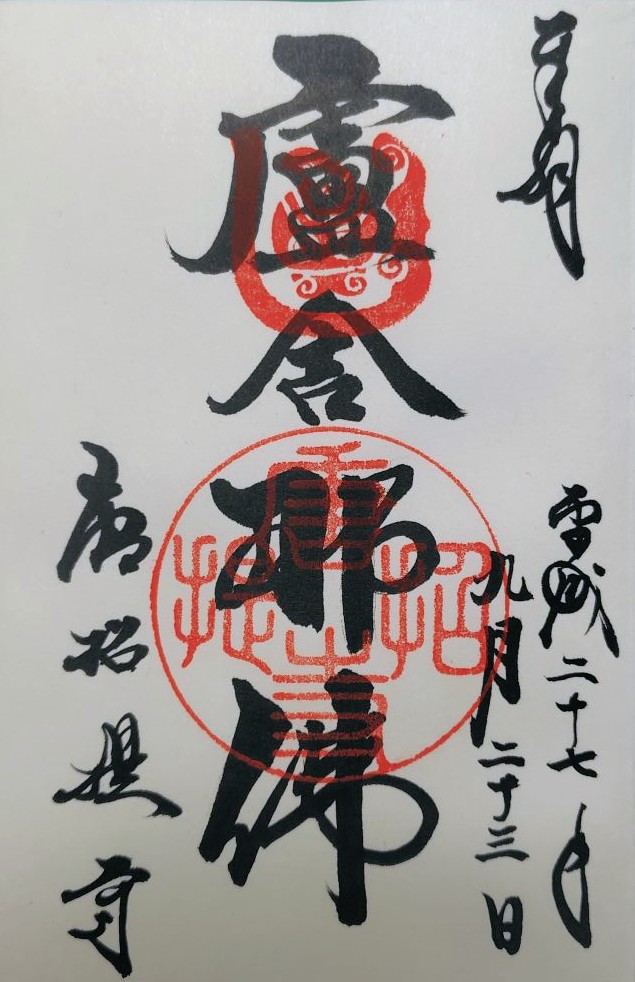 奉拝
平成二十七年
九月二十三日
盧舎那佛
唐招提寺
唐招提寺